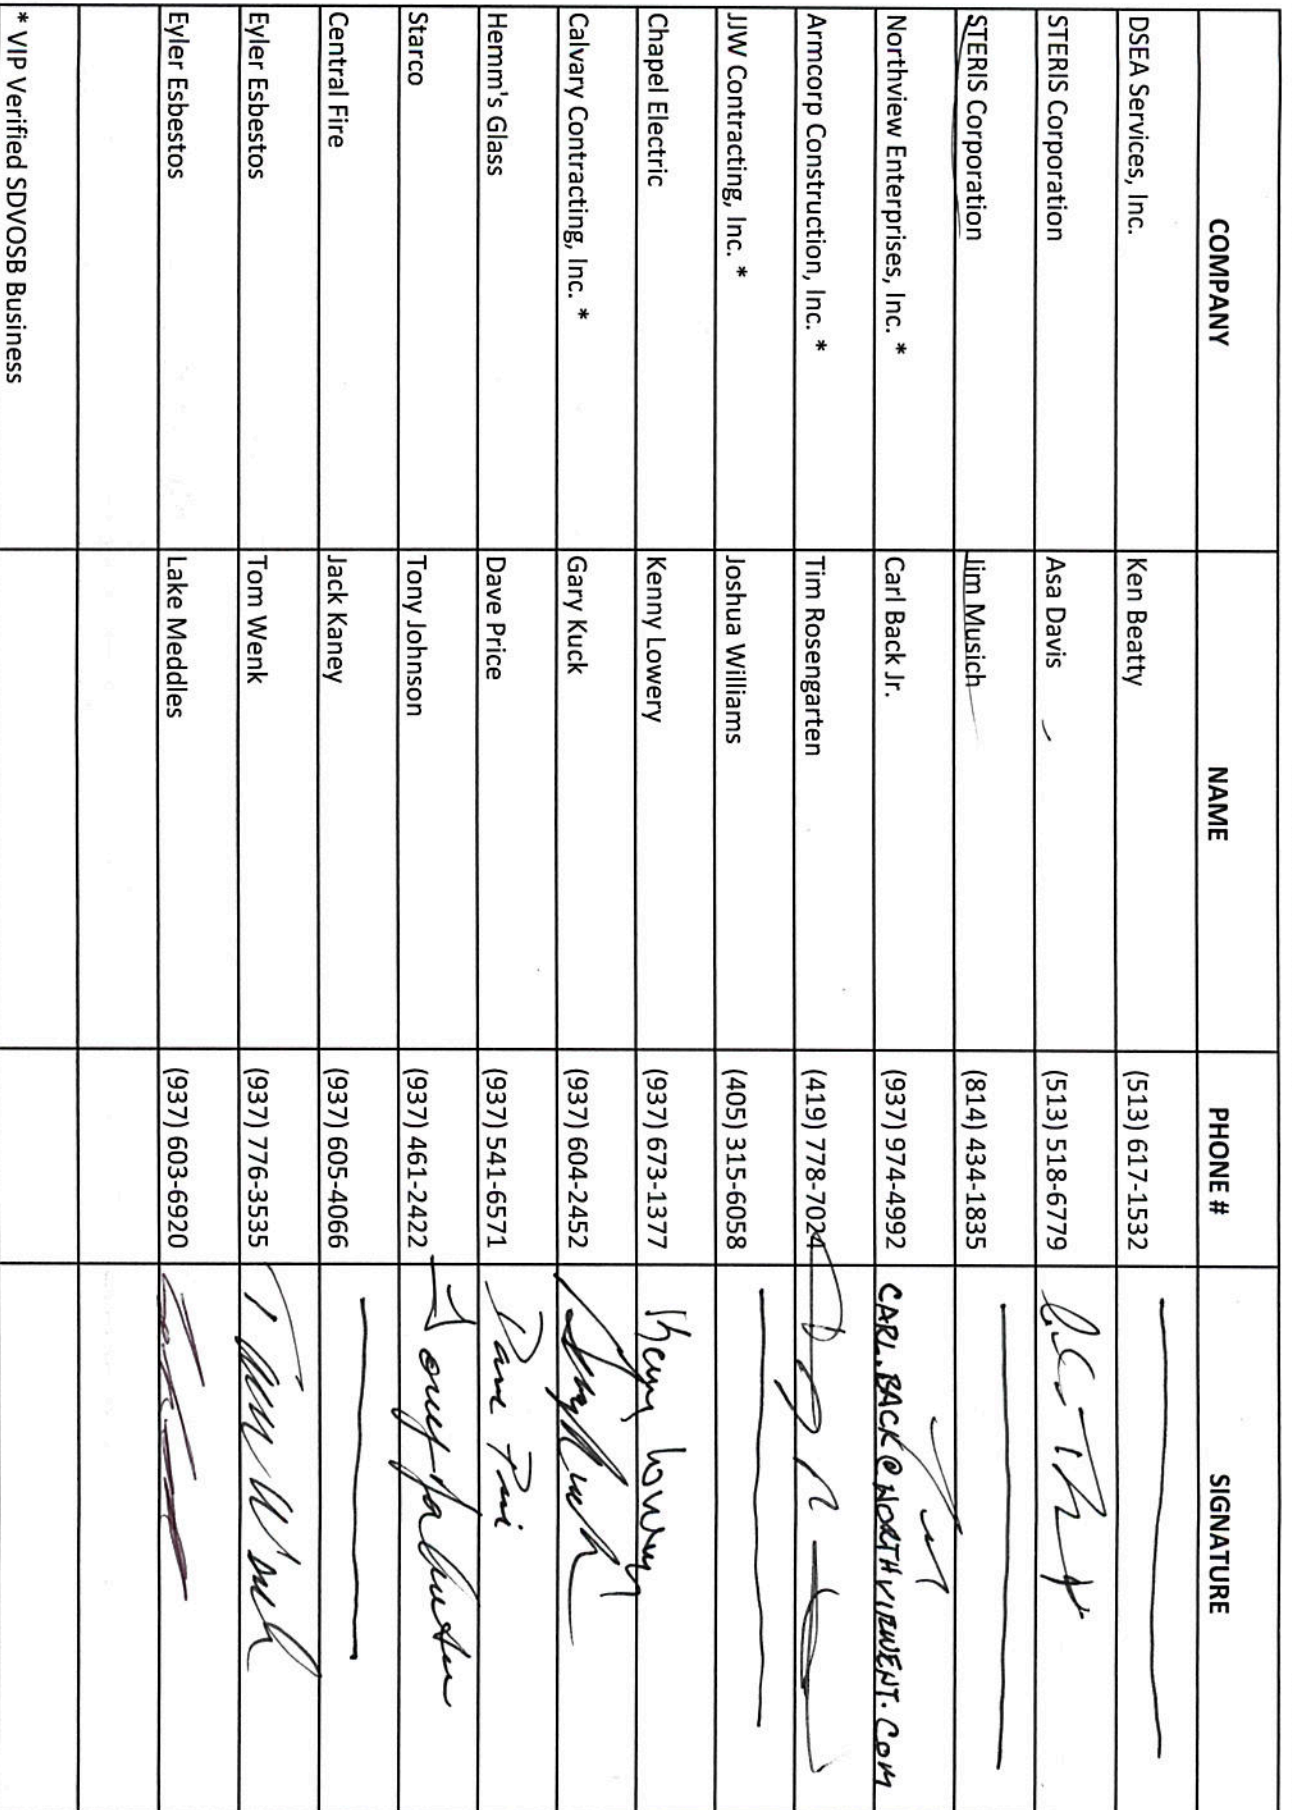 COMPANY NAME PHONE # SIGNATURE
DSEA Services, Inc. Ken Beatty (513) 617-1532
STERIS Corporation Asa Davis (513) 518-6779
STERIS Corporation Jim Musich (814) 434-1835
Northview Enterprises, Inc. * Carl Back Jr. (937) 974-4992 CARL.BACK@NORTHVIEWENT.COM
Armcorp Construction, Inc. * Tim Rosengarten (419) 778-7024
JJW Contracting, Inc. * Joshua Williams (405) 315-6058
Chapel Electric Kenny Lowery (937) 673-1377 Kenny Lowery
Calvary Contracting, Inc. * Gary Kuck (937) 604-2452 Gary Kuck
Hemm's Glass Dave Price (937) 541-6571 Dave Price
Starco Tony Johnson (937) 461-2422 Tony Johnson
Central Fire Jack Kaney (937) 605-4066
Eyler Esbestos Tom Wenk (937) 776-3535 Tom Wenk
Eyler Esbestos Lake Meddles (937) 603-6920
* VIP Verified SDVOSB Business